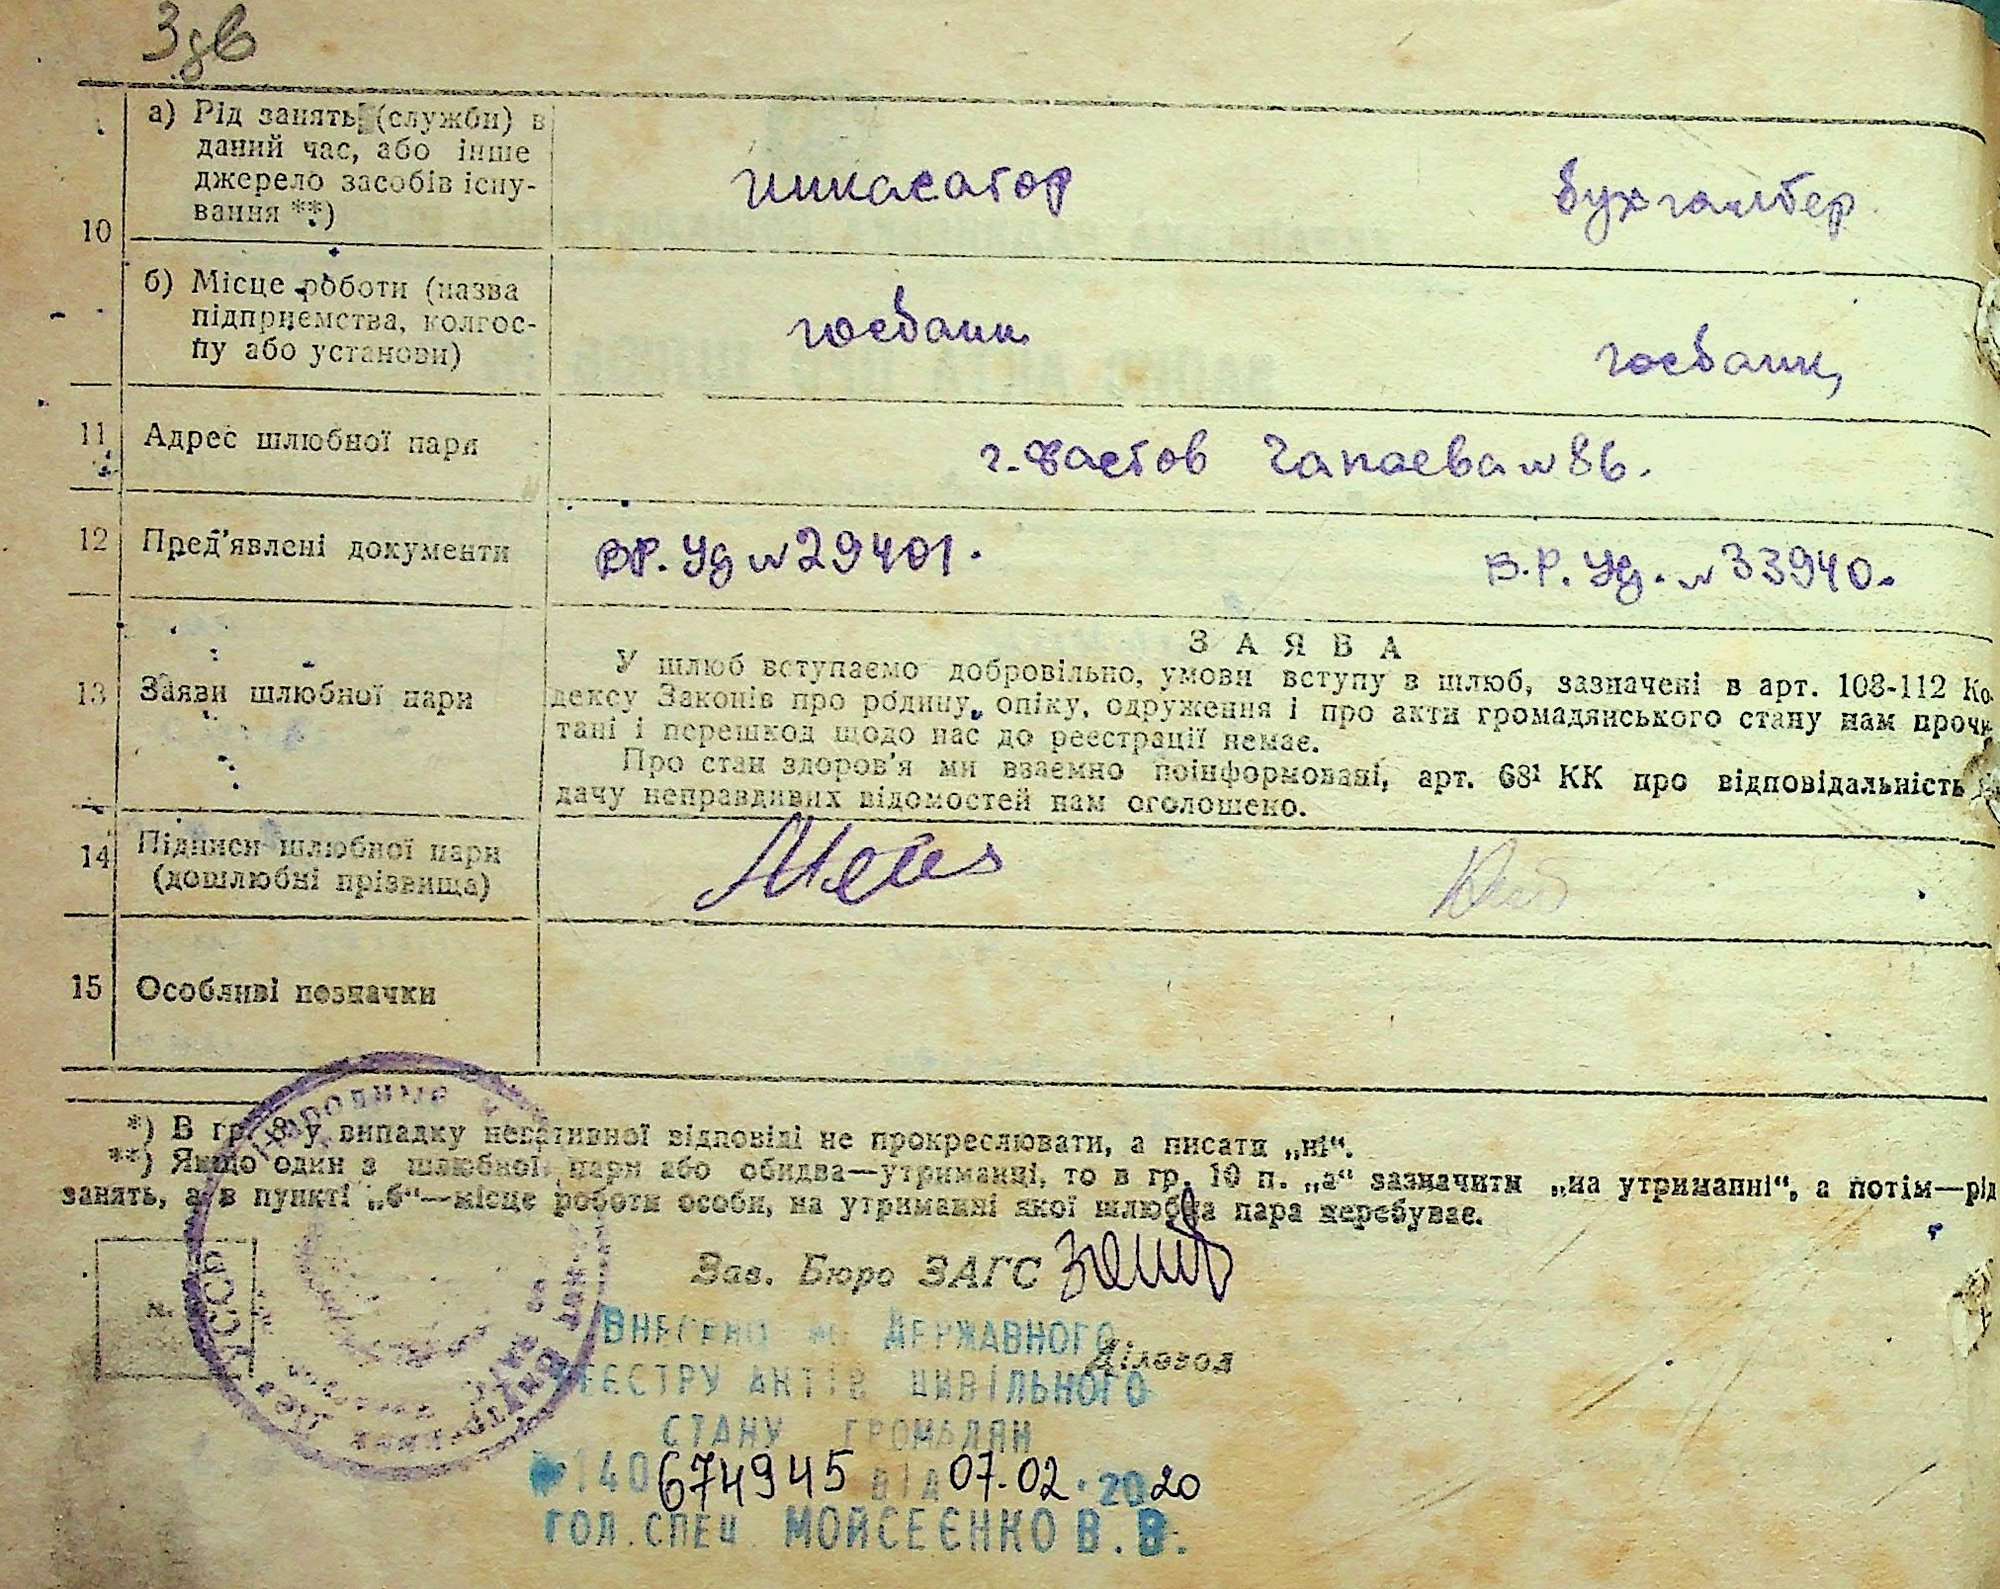 Здв
10
а) Рід занять (служби) в
даний час, або інше
джерело засобів існу-
вання **)
инкасатор
бухгалтер
б) Місце роботи (назва
підприємства, колгос-
пу або установи)
госбанк
госбанк,
11 Адрес шлюбної пари г. Фастов Чапаева № 86.
12 Пред'явлені документи ВР. Уд № 29401. В.Р. Уд. № 33940.
13 Заяви шлюбної пари
ЗАЯВА
У шлюб вступаємо добровільно, умови вступу в шлюб, зазначені в арт. 108-112 Ко-
дексу Законів про родину, опіку, одруження і про акти громадянського стану нам прочи
тані і перешкод щодо нас до реєстрації немає.
Про стан здоров'я ми взаємно поінформовані, арт. 68¹ КК про відповідальність
дачу неправдивих відомостей нам оголошено.
14 Підписи шлюбної пари
(дошлюбні прізвища)
15 Особливі позначки
*) В гр. 8 у випадку негативної відповіді не прокреслювати, а писати „ні“.
**) Якщо один з шлюбної пари або обидва—утриманці, то в гр. 10 п. „а“ зазначити „на утриманні“, а потім—рід
занять, а в пункті „б“—місце роботи особи, на утриманні якої шлюбна пара перебуває.
УССР
Зав. Бюро ЗАГС
Діловод
ВНЕСЕНО ДО ДЕРЖАВНОГО
РЕЄСТРУ АКТІВ ЦИВІЛЬНОГО
СТАНУ ГРОМАДЯН
№ 140 674945 ВІД 07.02.2020
ГОЛ. СПЕЦ. МОЙСЕЄНКО В.В.